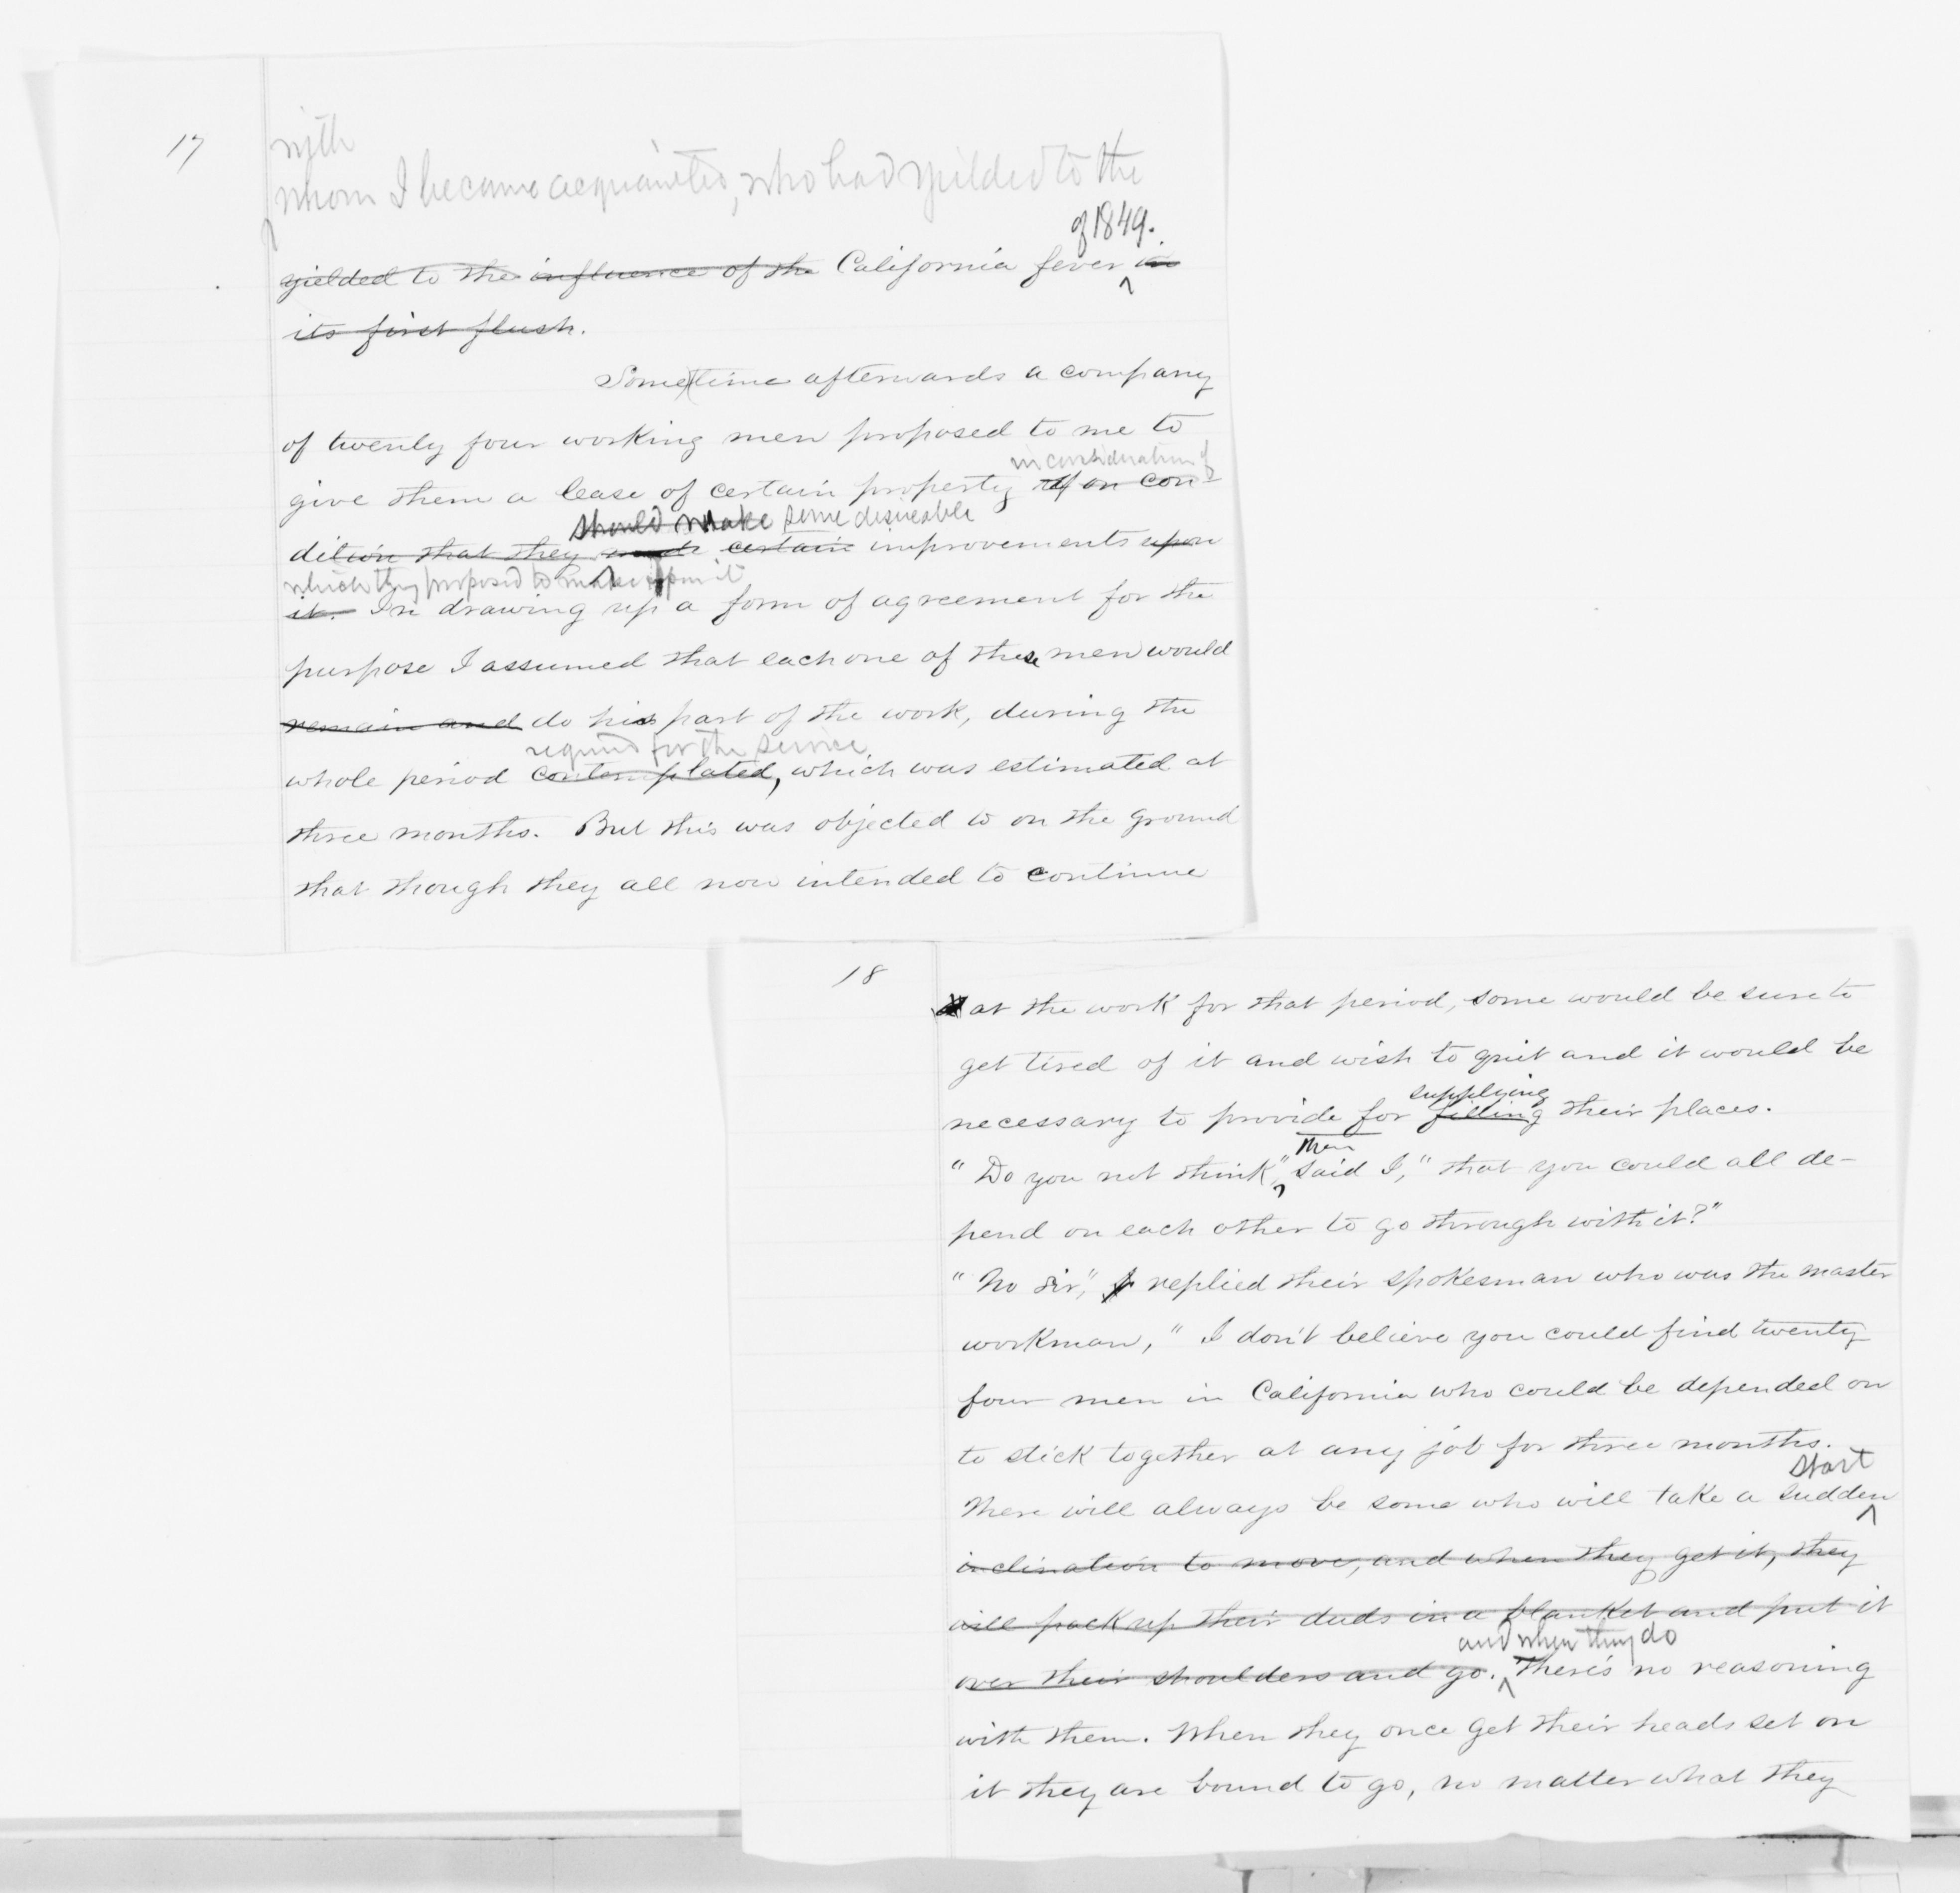 17
with
whom I became acquainted, who had yeilded to the
of 1849.
yielded to the influence of the California fever in
its first flush.
Some time afterwards a company
of twenty four working men proposed to me to
in consideration of
give them a lease of certain property if on con-
should make some desireable
dition that they made certain improvements upon
which they proposed to make upon it
it. In drawing up a form of agreement for the
purpose I assumed that each one of these men would
remain and do his part of the work, during the
required for the service
whole period contemplated, which was estimated at
three months. But this was objected to on the ground
that though they all now intended to continue
18
at the work for that period, some would be sure to
get tired of it and wish to quit and it would be
supplying
necessary to provide for filling their places.
then
"Do you not think," said I, "that you could all de-
pend on each other to go through with it?"
"No sir," replied their spokesman who was the master
workman, "I don't believe you could find twenty
four men in California who could be depended on
to stick together at any job for three months.
start
There will always be some who will take a sudden
inclination to move, and when they get it, they
will pack up their duds in a blanket and put it
and when they do
over their shoulders and go. There's no reasoning
with them. When they once get their heads set on
it they are bound to go, no matter what they